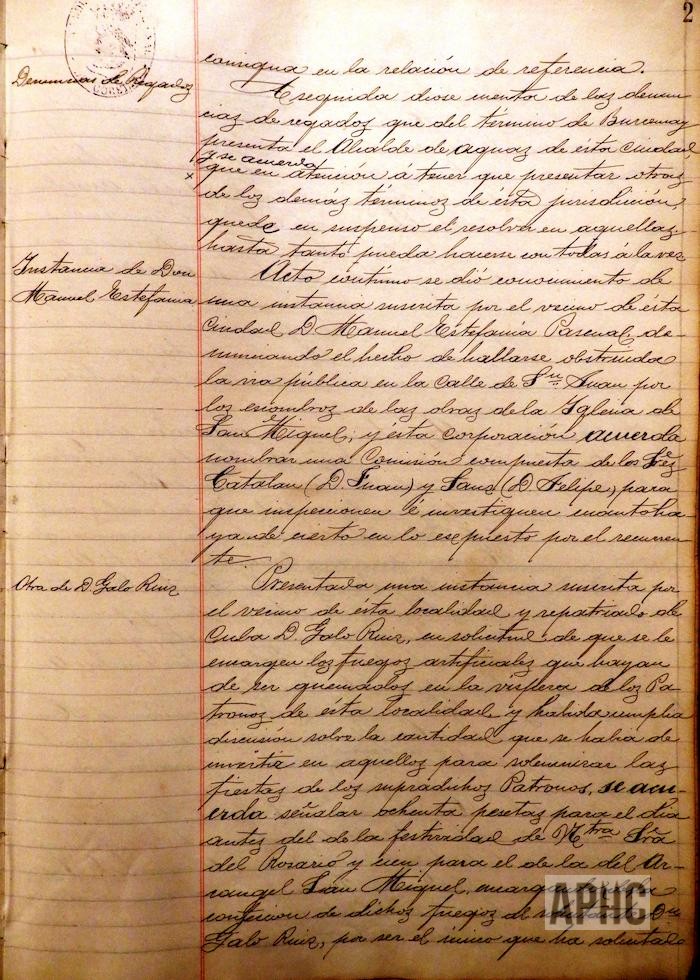 2
consigna en la relación de referencia.
Denuncias de Regados
A seguida diose cuenta de las denun-
cias de regados que del término de Burcemay
presenta el Alcalde de aguas de esta Ciudad
y se acuerda
x que en atención á tener que presentar otras
de los demás términos de ésta jurisdicción,
quede en suspenso el resolver en aquellas,
hasta tanto pueda hacerse con todas á la vez
Instancia de Don
Manuel Estefania
Acto contínuo se dió conocimiento de
una instancia suscrita por el vecino de ésta
Ciudad D. Manuel Estefanía Pascual, de-
nunciando el hecho de hallarse obstruida
la via pública en la Calle de Sn. Juan por
los escombros de las obras de la Iglesia de
San Miguel; y esta corporación acuerda
nombrar una Comisión compuesta de los Sres
Catalan (D. Juan) y Sanz (D. Felipe) para
que inspecionen é investiguen cuanto ha-
ya de cierto en lo espuesto por el recurren-
te.
Otra de D. Galo Ruiz
Presentada una instancia suscrita por
el vecino de ésta localidad y repatriado de
Cuba D. Galo Ruiz, en solicitud de que se le
encarguen los fuegos artificiales que hayan
de ser quemados en la víspera de los Pa-
tronos de ésta localidad, y habida amplia
discusión sobre la cantidad que se habia de
invertir en aquellos para solemnizar las
fiestas de los supradichos Patronos, se acu-
erda señalar ochenta pesetas para el dia
antes del de la festividad de Ntra Sra
del Rosario y cien para el de la del Ar-
cangel San Miguel, encargando la
confección de dichos fuegos al Don
Galo Ruiz, por ser el único que ha solicitado
APHC